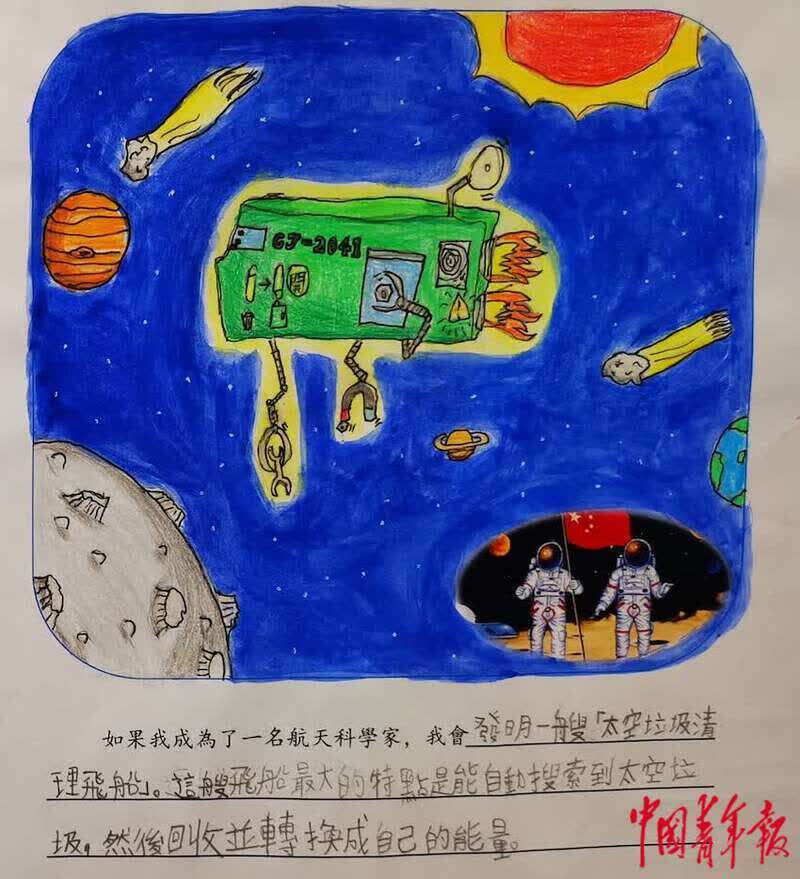 CJ-2041
開
如果我成為了一名航天科學家，我會發明一艘「太空垃圾清
理飛船」。這艘飛船最大的特點是能自動搜索到太空垃
圾，然後回收並轉換成自己的能量。
中国青年报